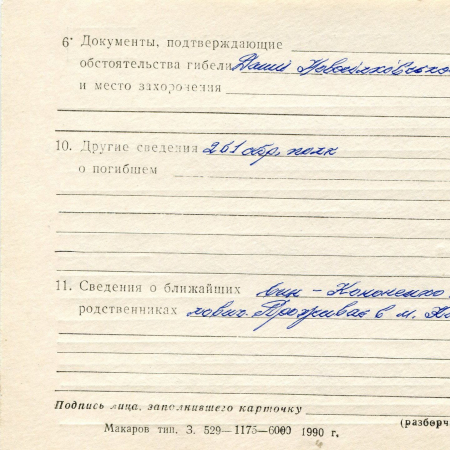 6• Документы, подтверждающие
обстоятельства гибели
и место захоронения
10. Другие сведения 261 стр. полк
о погибшем
11. Сведения о ближайших син – Кононенко
родственниках хович. Проживає в м.
Подпись лица, заполнившего карточку
(разборч
Макаров тип. З. 529—1175—6000 1990 г.